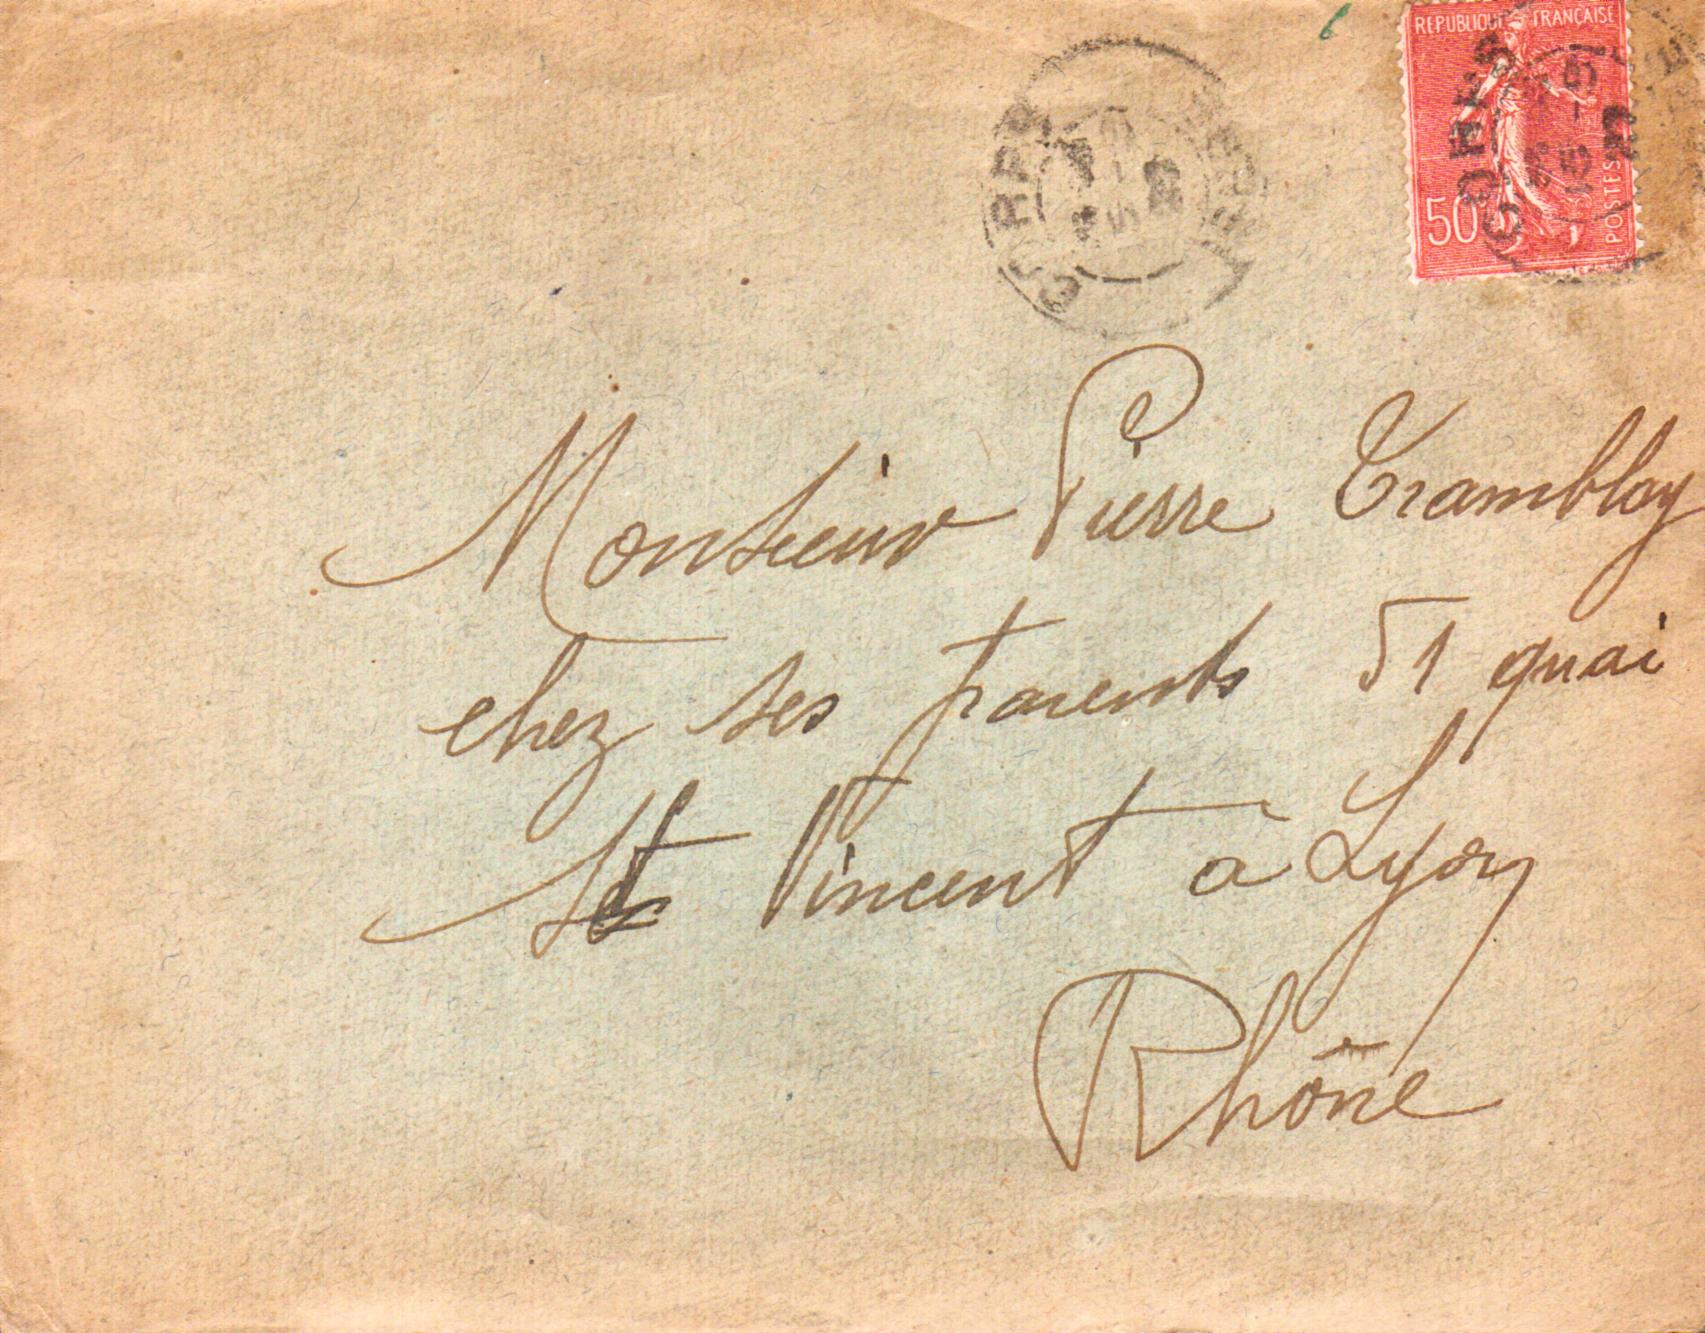 REPUBLIQUE FRANÇAISE
50c
POSTES
Monsieur Pierre Tramblay
chez ses parents 51 quai
St Vincent à Lyon
Rhône